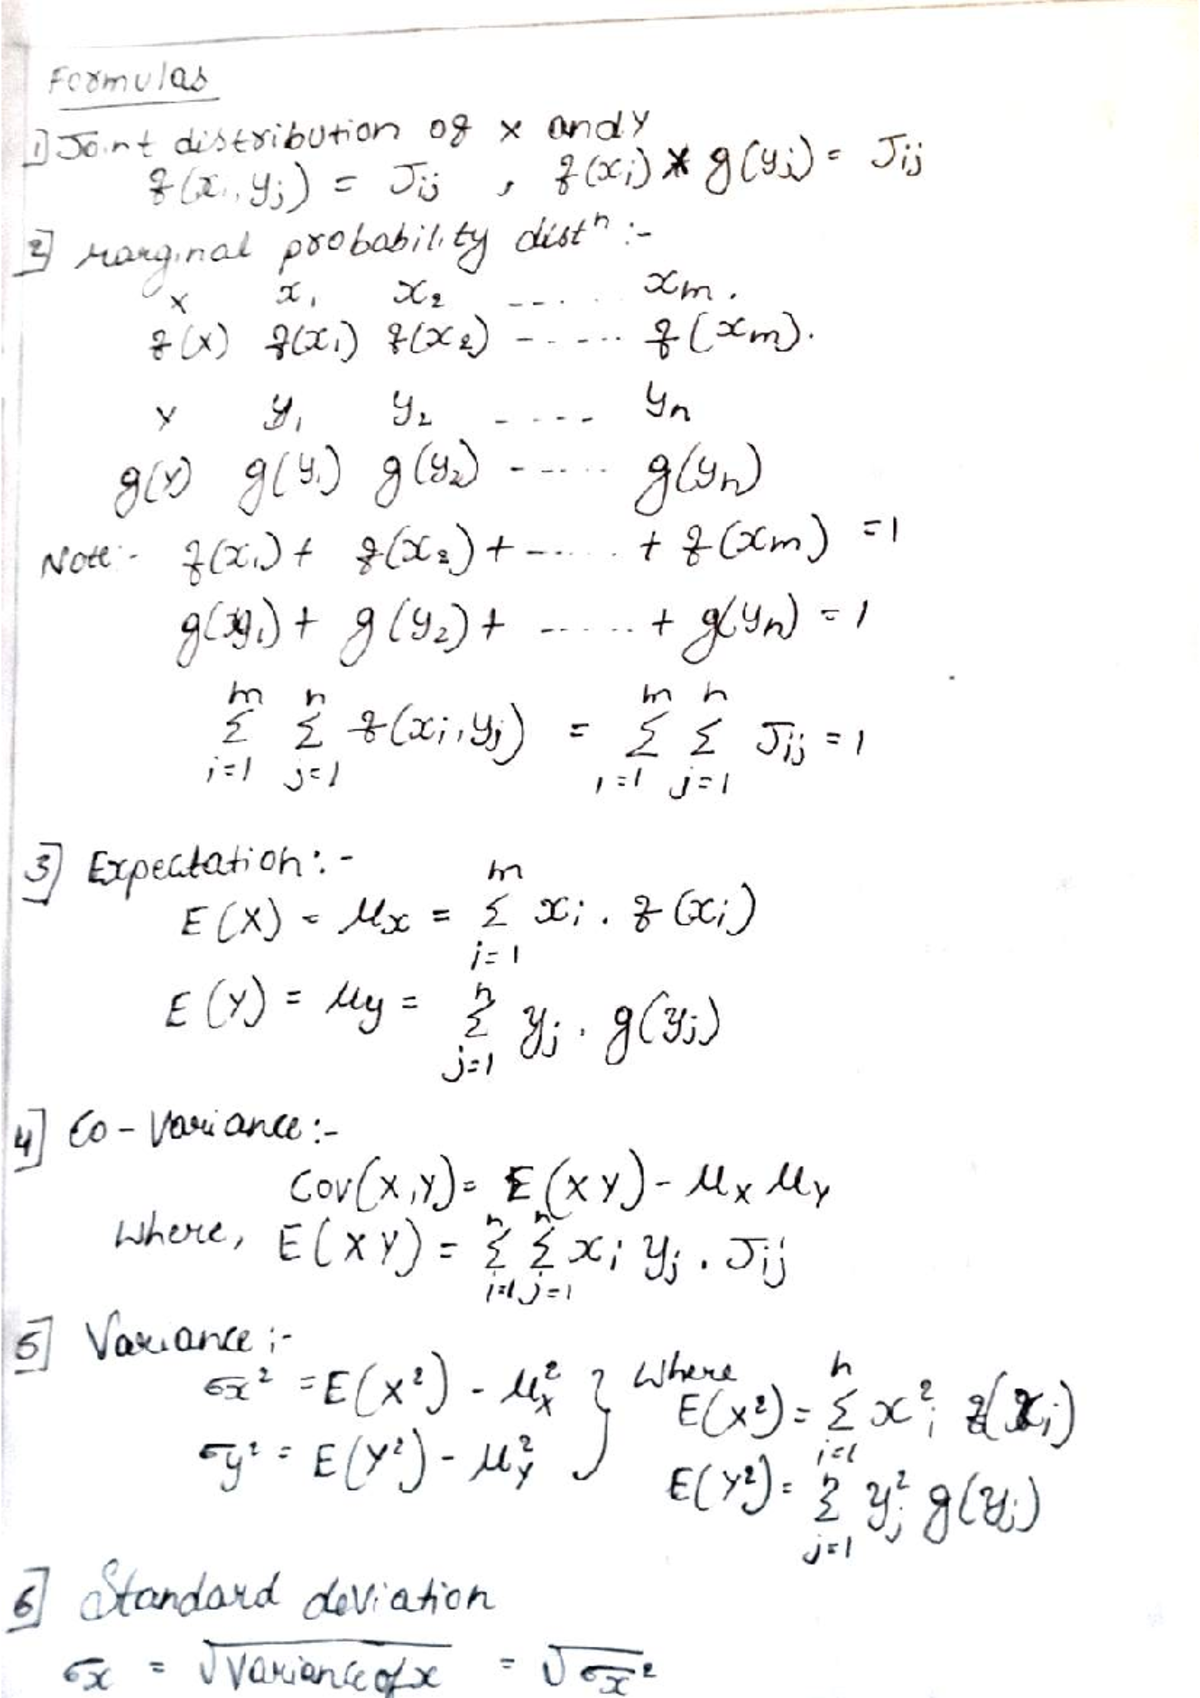 Formulas
1] Joint distribution of x and y
f(xi, yj) = Jij , f(xi) * g(yj) = Jij
2] Marginal probability distⁿ :-
x x₁ x₂ ---.... xm.
f(x) f(x₁) f(x₂) -..-... f(xm).
Y y₁ y₂ ..... yn
g(Y) g(y₁) g(y₂) -..-... g(yn)
Note:- f(x₁) + f(x₂) + -..... + f(xm) = 1
g(y₁) + g(y₂) + ...... + g(yn) = 1
m n m n
Σ Σ f(xi, yj) = Σ Σ Jij = 1
i=1 j=1 i=1 j=1
3] Expectation:-
m
E(X) = μx = Σ xi . f(xi)
i=1
n
E(Y) = μy = Σ yj . g(yj)
j=1
4] Co-Variance:-
Cov(X,Y) = E(XY) - μX μY
n n
Where, E(XY) = Σ Σ xi yj . Jij
i=1 j=1
5] Variance:-
σx² = E(X²) - μX² } Where E(X²) = Σ xi² f(xi)
n i=1
σy² = E(Y²) - μY² E(Y²) = Σ yj² g(yj)
n j=1
6] Standard deviation
σx = √Variance of x = √σx²